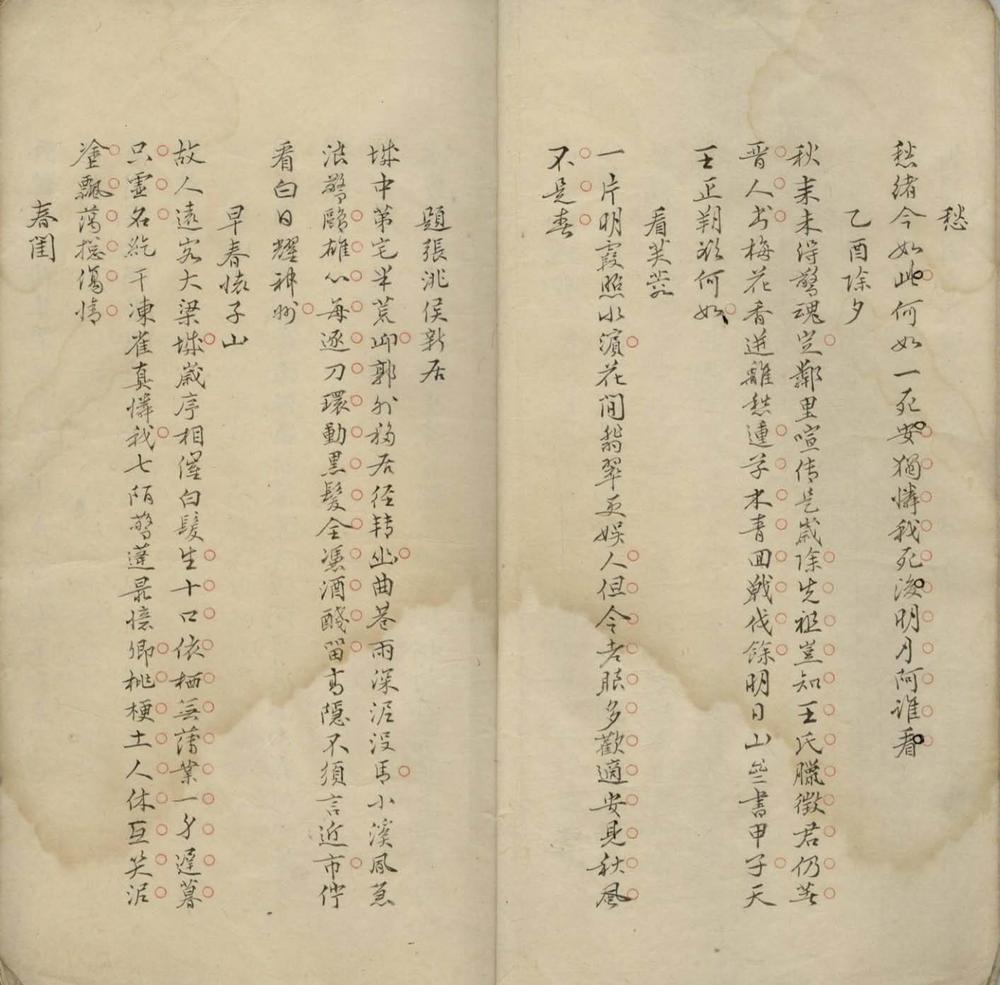 愁
愁緒今如此何如一死安猶憐我死後明月阿誰看
乙酉除夕
秋来未得驚魂定鄰里喧传是歲除先祖豈知王氏臘徵君仍英
晋人书梅花香送離愁連草木青回戰伐餘明日山書甲子天
王正朔欲何如
看芙蓉
一片明霞照水濱花间翡翠更娛人但令老眼多歡適安見秋風
不是春
題張洮侯新居
城中第宅半荒邱郭外移居径转幽曲巷雨深泥没馬小溪風急
浪驚鷗雄心每逐刀環動黒髮全憑酒醆留高隱不須言近市佇
看白日耀神州
早春懷子山
故人遠客大梁城歲序相催白髮生十口依栖無藉業一身遲暮
只虚名紇干凍雀真憐我七陌驚蓬最憶卿桃梗土人休互笑泥
塗飄蕩揔傷情
春闺